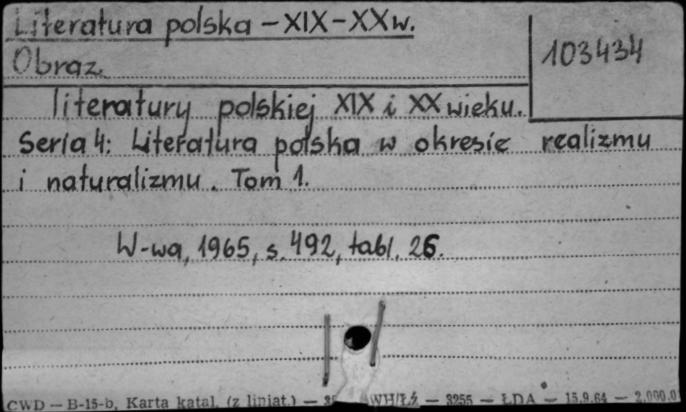 Literatura polska – XIX–XX w.
103434
Obraz
literatury polskiej XIX i XX wieku.
Seria 4: Literatura polska w okresie realizmu
i naturalizmu. Tom 1.
W-wa, 1965, s. 492, tabl. 26.
CWD — B-15-b, Karta katal. (z liniat.) — WH/Łź — 3255 — ŁDA — 15.9.64 — 2.000.0